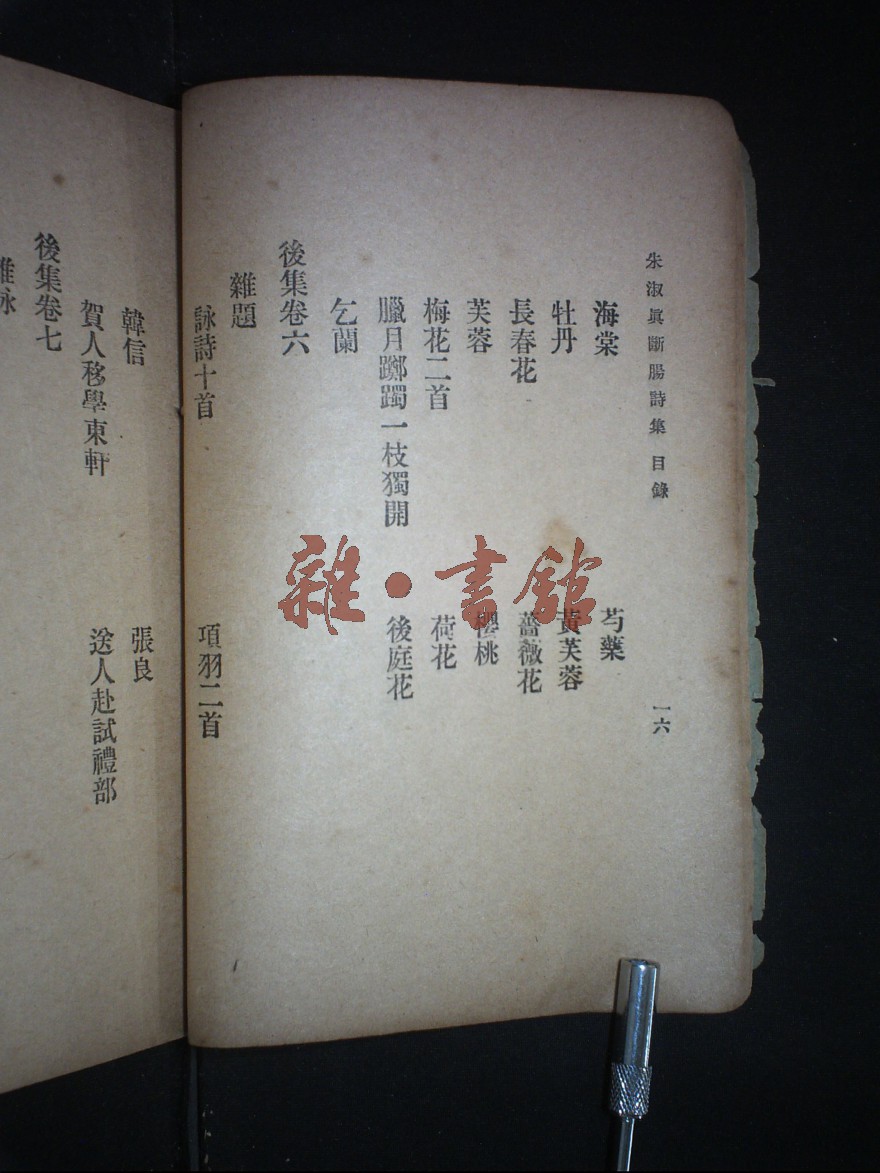 朱淑眞斷腸詩集 目錄 一六
海棠 芍藥
牡丹 黃芙蓉
長春花 薔薇花
芙蓉 櫻桃
梅花二首 荷花
臘月躑躅一枝獨開 後庭花
乞蘭
後集卷六
雜題
詠詩十首 項羽二首
韓信 張良
賀人移學東軒 送人赴試禮部
後集卷七
雜·書館